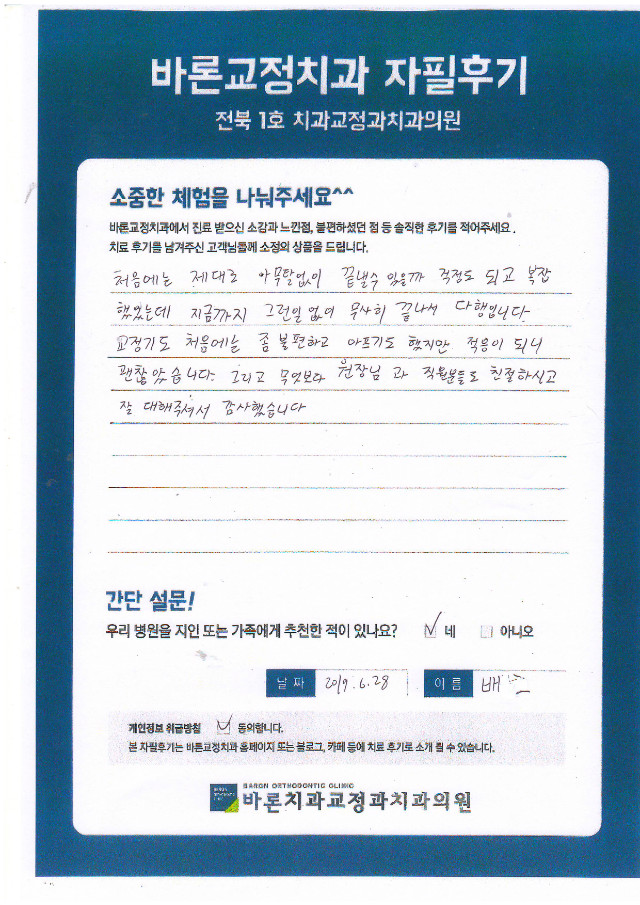 바론교정치과 자필후기
전북 1호 치과교정과치과의원
소중한 체험을 나눠주세요^^
바론교정치과에서 진료 받으신 소감과 느낀점, 불편하셨던 점 등 솔직한 후기를 적어주세요.
치료 후기를 남겨주신 고객님들께 소정의 상품을 드립니다.
처음에는 제대로 아무탈없이 끝낼수 있을까 걱정도 되고 복잡
했었는데 지금까지 그런일 없이 무사히 끝나서 다행입니다
교정기도 처음에는 좀 불편하고 아프기도 했지만 적응이 되니
괜찮았습니다. 그리고 무엇보다 원장님 과 직원분들도 친절하시고
잘 대해주셔서 감사했습니다
간단 설문!
우리 병원을 지인 또는 가족에게 추천한 적이 있나요? 네 아니오
날 짜 2019. 6. 28 이 름 배
개인정보 취급방침 동의합니다.
본 자필후기는 바론교정치과 홈페이지 또는 블로그, 카페 등에 치료 후기로 소개 될 수 있습니다.
BARON ORTHODONTIC CLINIC
바론치과교정과치과의원